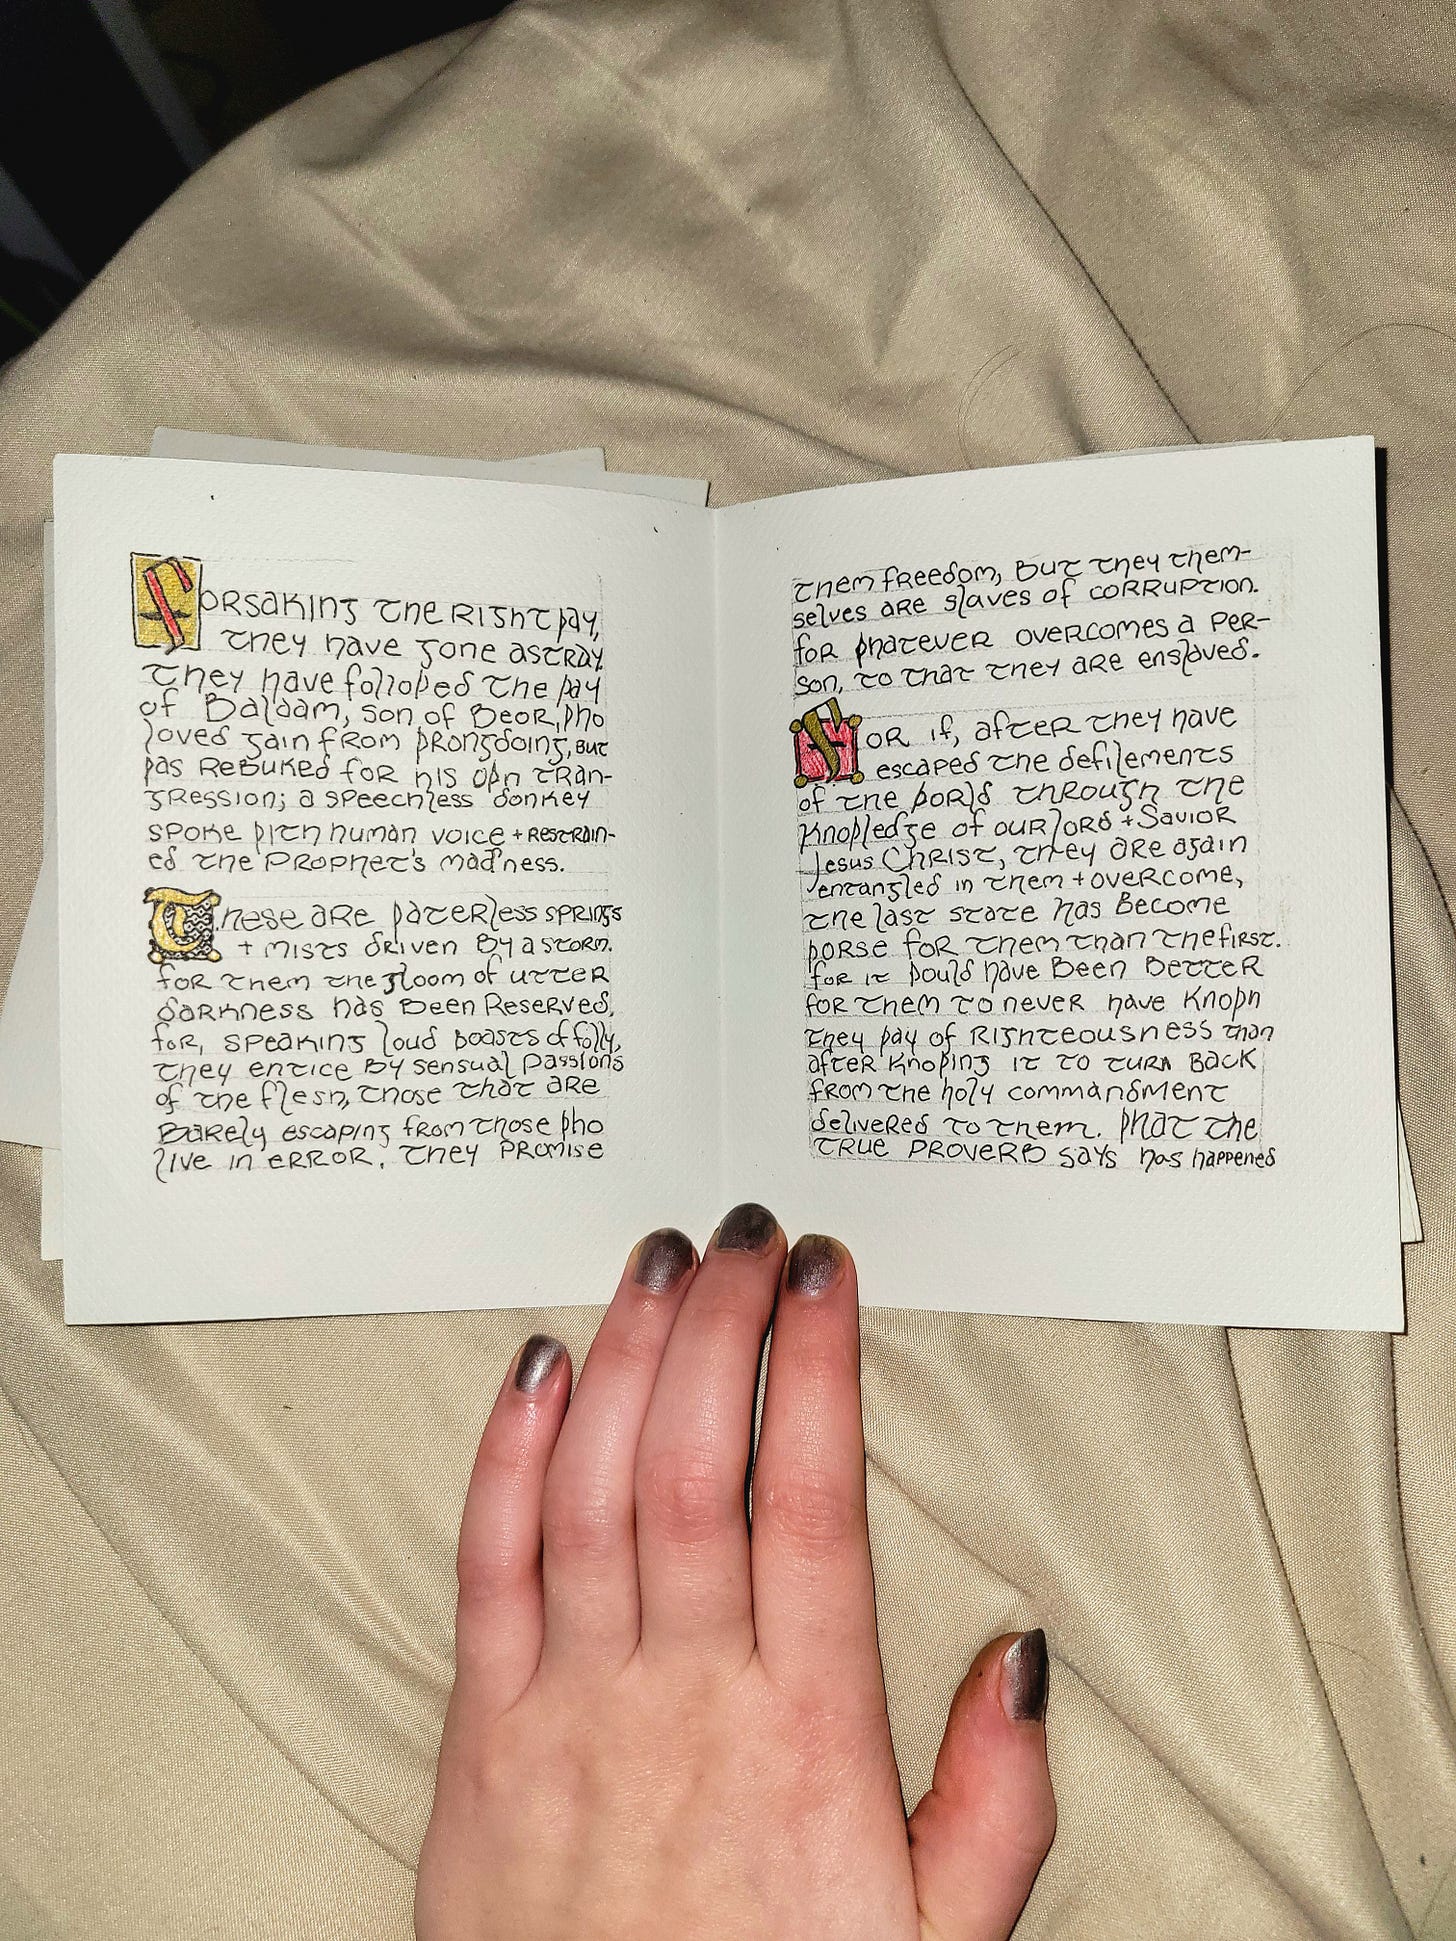 Forsaking the right ƿay,
they have gone astray.
they have folloƿed the ƿay
of Balaam, son of Beor, ƿho
loved gain from ƿrongdoing, but
ƿas rebuked for his oƿn tran-
gression; a speechless donkey
spoke ƿith human voice + restrain-
ed the prophet's madness.
These are ƿaterless springs
+ mists driven by a storm.
for them the gloom of utter
darkness has been reserved.
for, speaking loud boasts of folly,
they entice by sensual passions
of the flesh, those that are
barely escaping from those ƿho
live in error. They promise
them freedom, but they them-
selves are slaves of corruption.
for ƿhatever overcomes a per-
son, to that they are enslaved.
For if, after they have
escaped the defilements
of the ƿorld through the
knoƿledge of our lord + Savior
Jesus Christ, they are again
entangled in them + overcome,
the last state has become
ƿorse for them than the first.
for it ƿould have been better
for them to never have knoƿn
they ƿay of righteousness than
after knoƿing it to turn back
from the holy commandment
delivered to them. Ƿhat the
true proverb says has happened